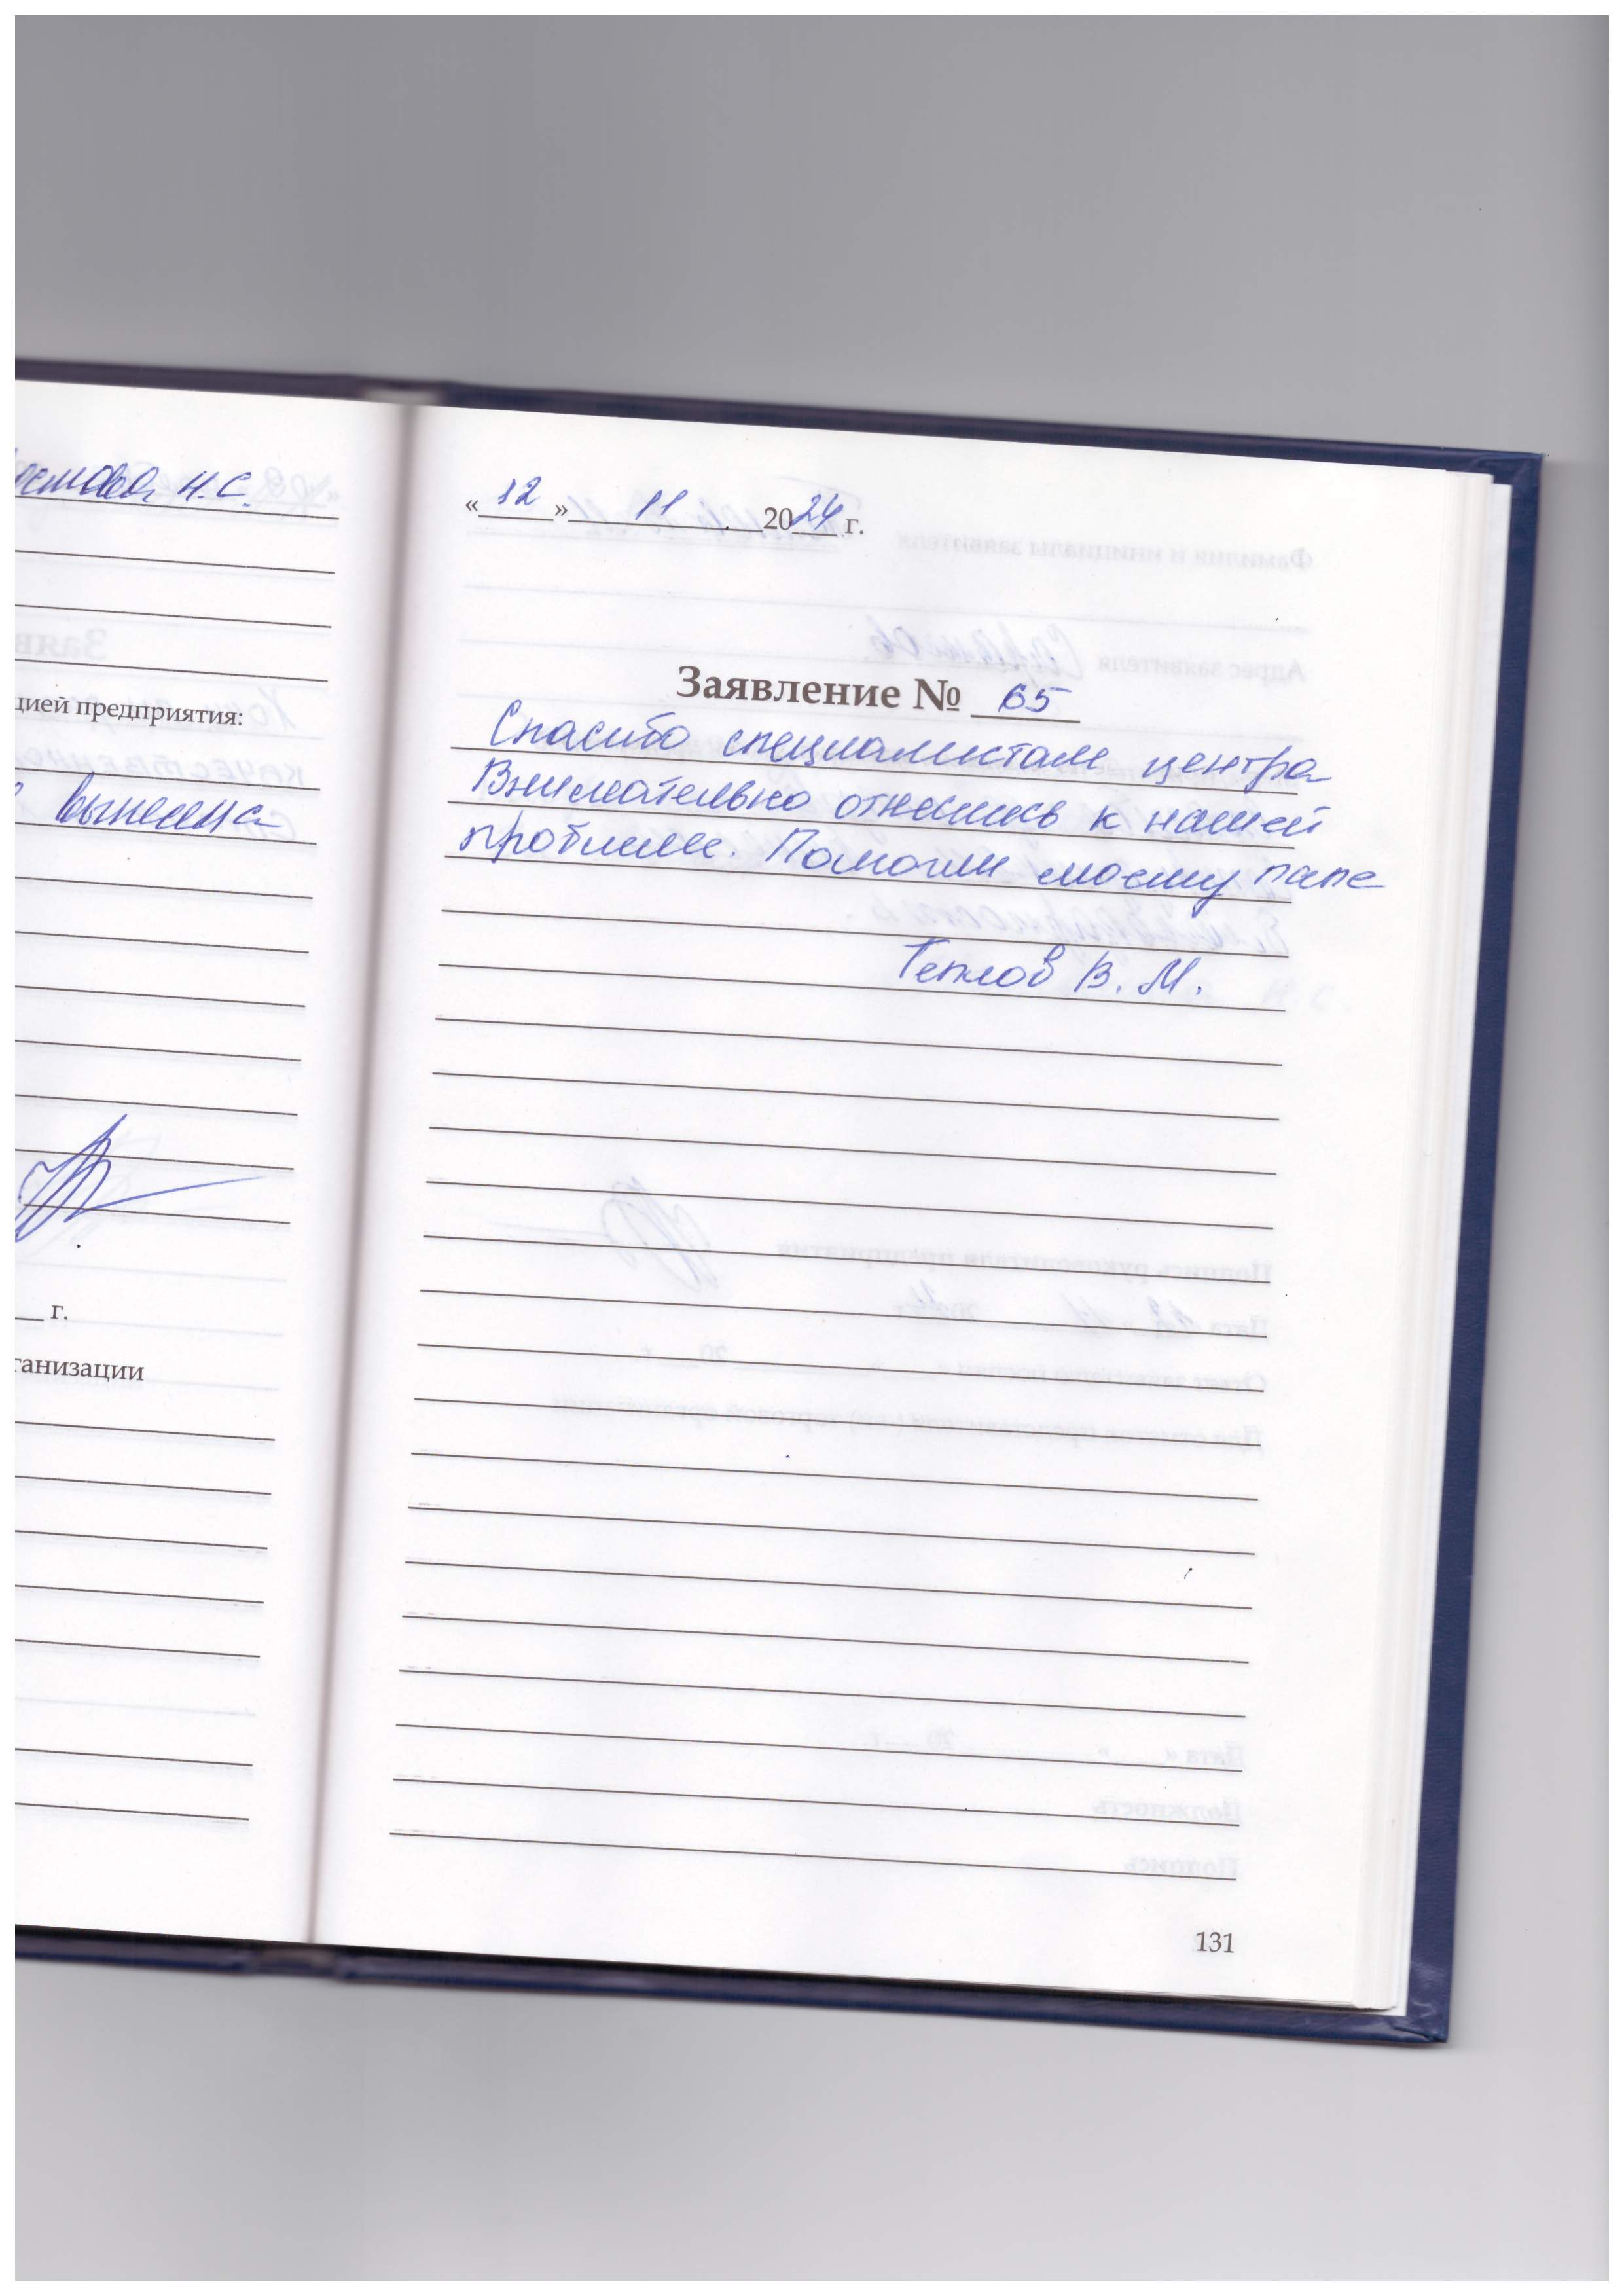 Н.С.
цией предприятия:
вынесена
г.
ганизации
«12» 11 2024 г.
Заявление № 65
Спасибо специалистам центра
Внимательно отнеслись к нашей
проблеме. Помогли моему папе
Теплов В. М.
131